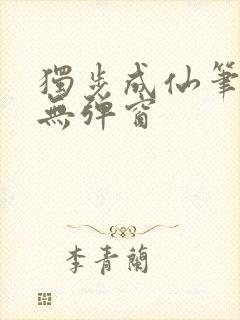 獨步成仙筆
無彈窗
李青蘭